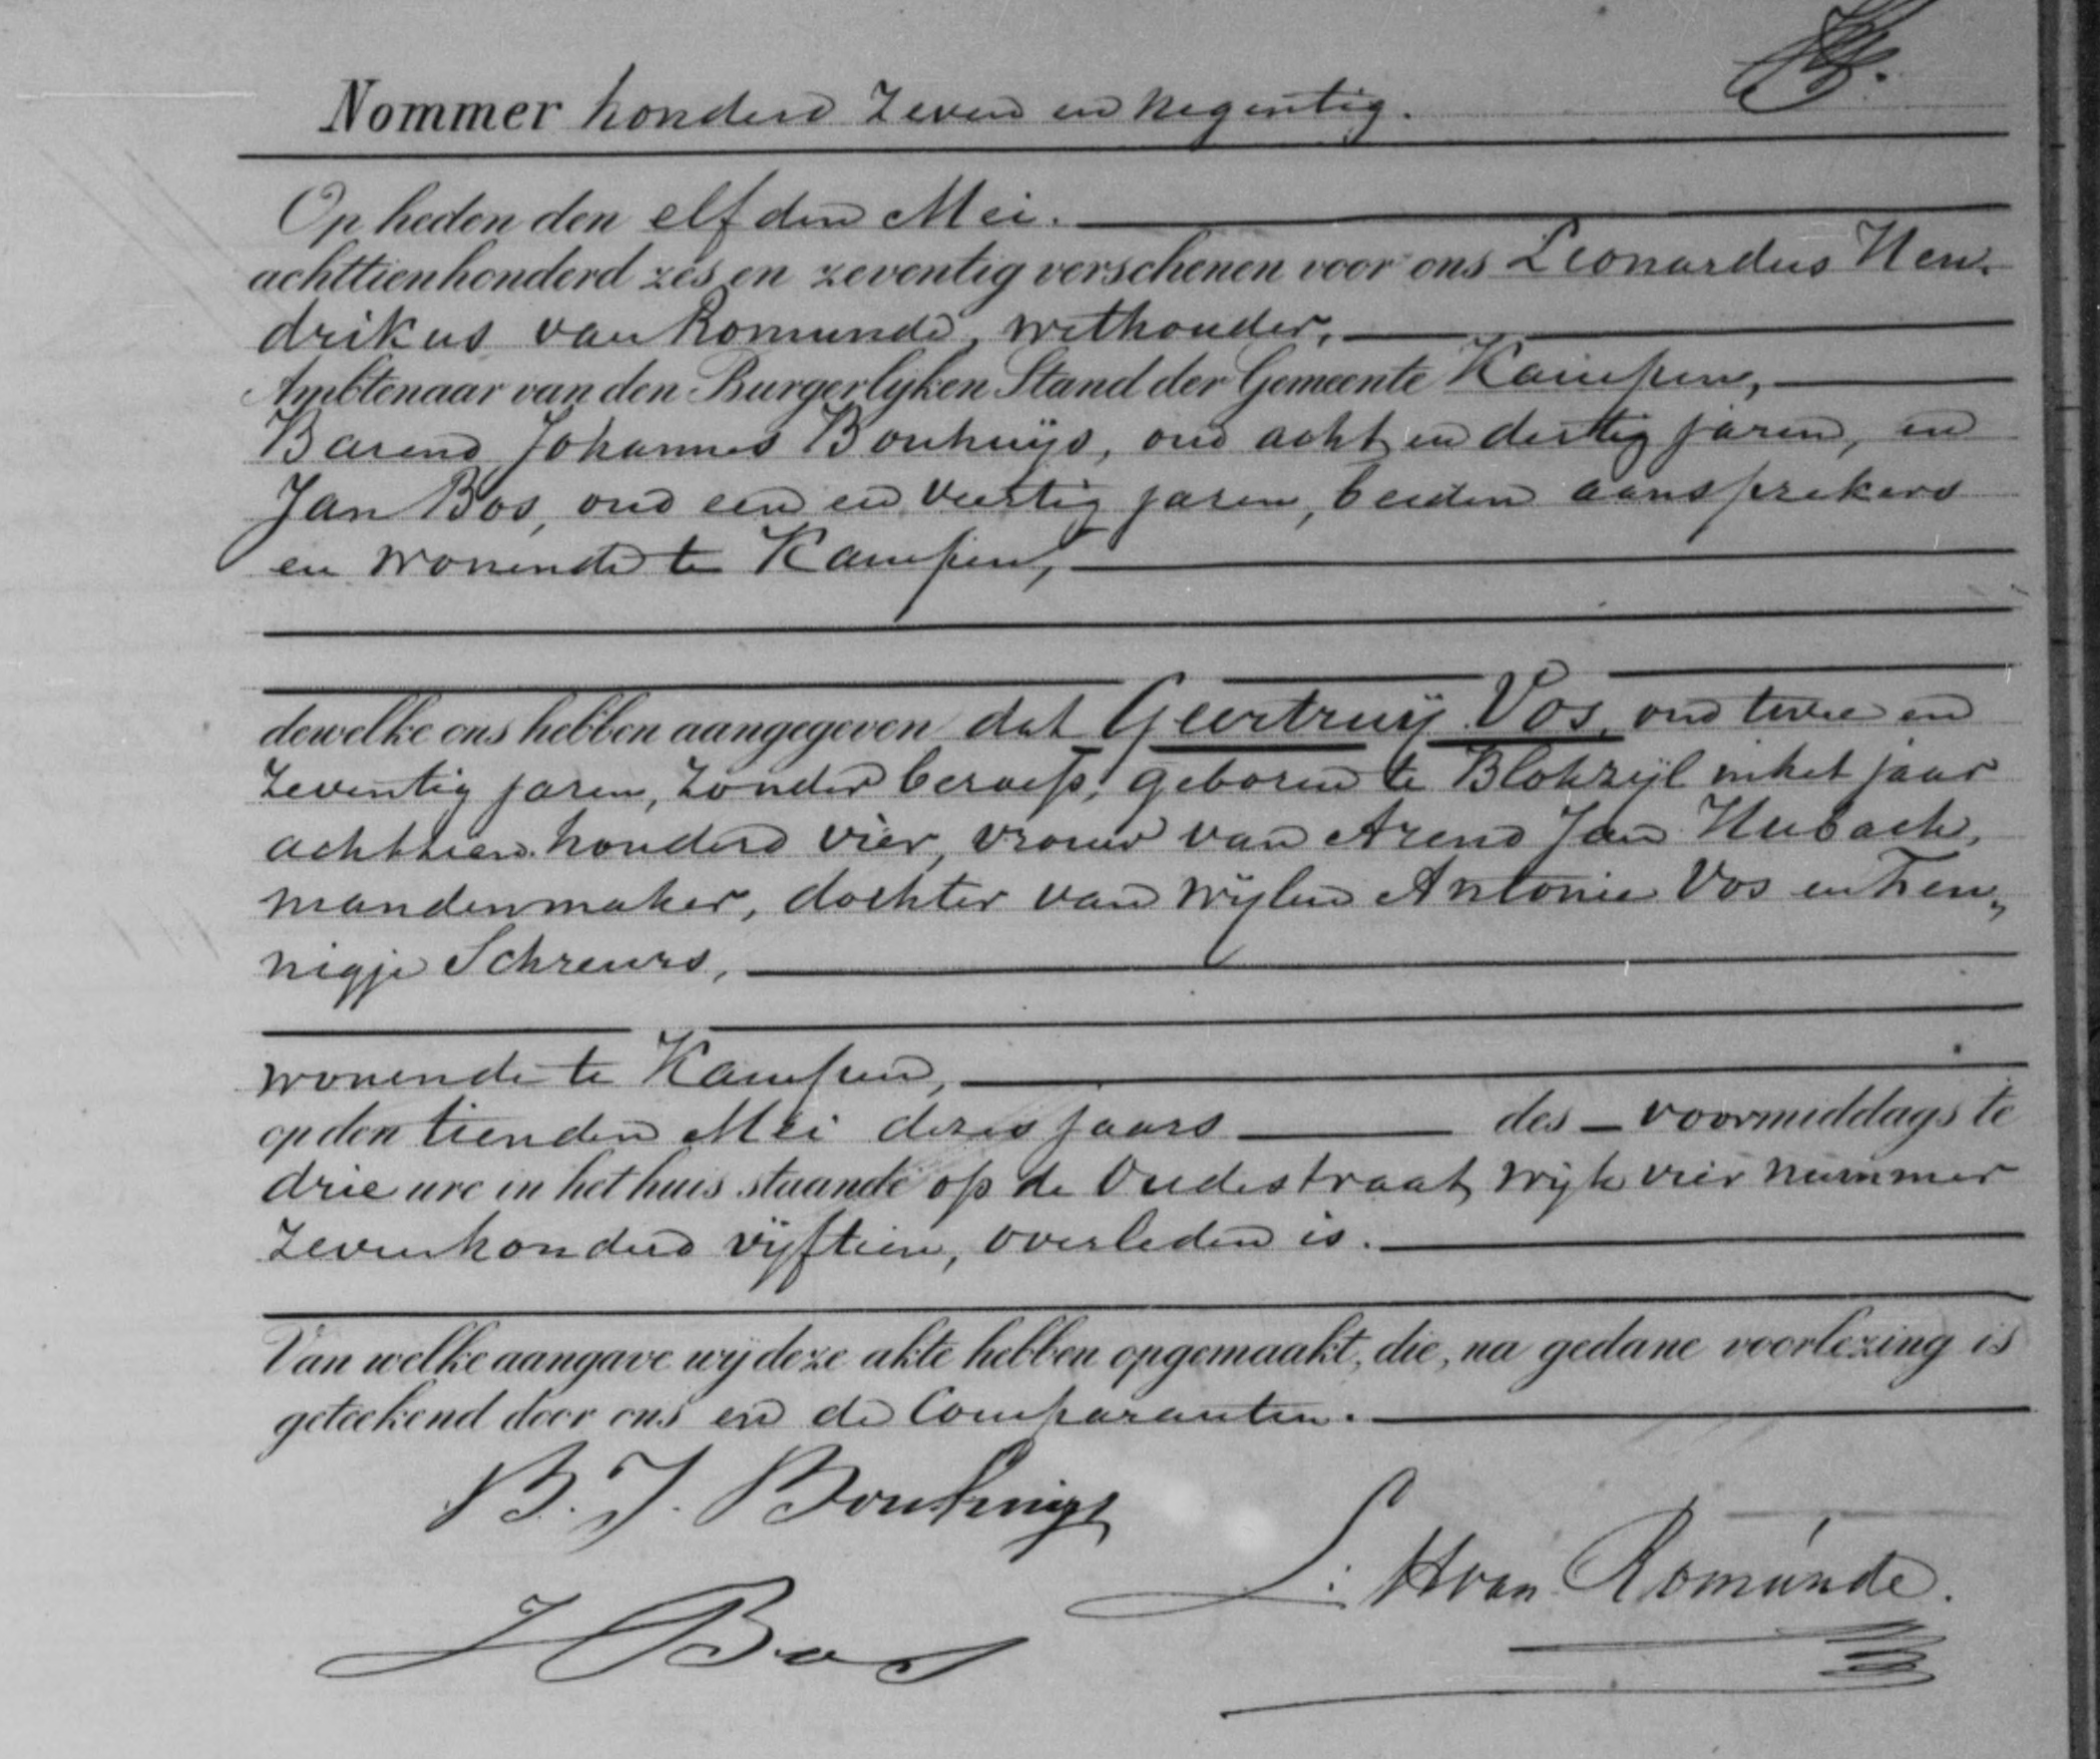 Nommer honderd zeven en negentig.
Op heden den elfden Mei.
achttienhonderd zes en zeventig verschenen voor ons Leonardus Hen-
drikus van Romunde, wethouder,
Ambtenaar van den Burgerlijken Stand der Gemeente Kampen,
Barend Johannes Bonhuijs, oud acht en dertig jaren, en
Jan Bos, oud een en veertig jaren, beiden aansprekers
en wonende te Kampen,
dewelke ons hebben aangegeven dat Geertruij Vos, oud twee en
zeventig jaren, zonder beroep, geboren te Blokzijl in het jaar
achttien honderd vier, vrouw van Arend Jan Hubach,
mandenmaker, dochter van wijlen Antonie Vos en Fen„
nigje Schreurs,
wonende te Kampen,
op den tienden Mei dezes jaars des voormiddags te
drie ure in het huis staande op de Oudestraat, wijk vier nummer
zevenhonderd vijftien, overleden is.
Van welke aangave wij deze akte hebben opgemaakt, die, na gedane voorlezing is
geteekend door ons en de Comparanten.
B. J. Bonhuijs
L: H van Romunde.
J Bos